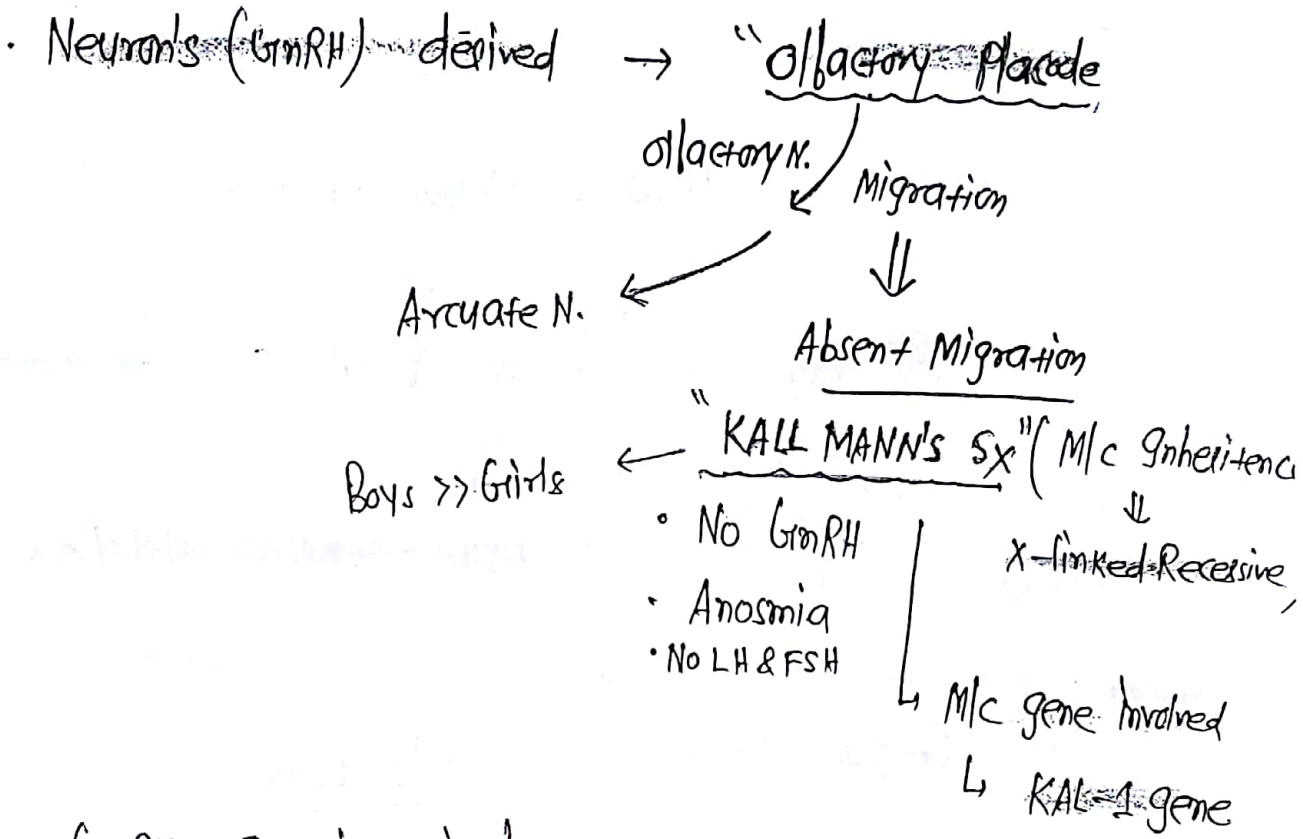 · Neuron's (GnRH) derived → "Olfactory Placode"
Olfactory N.
Migration
Arcuate N.
Absent Migration
"KALLMANN'S Sx" (M/c Inheritenc
Boys >> Girls
X-linked Recessive,
· No GnRH
· Anosmia
· No LH & FSH
M/c gene Involved
KAL-1 gene